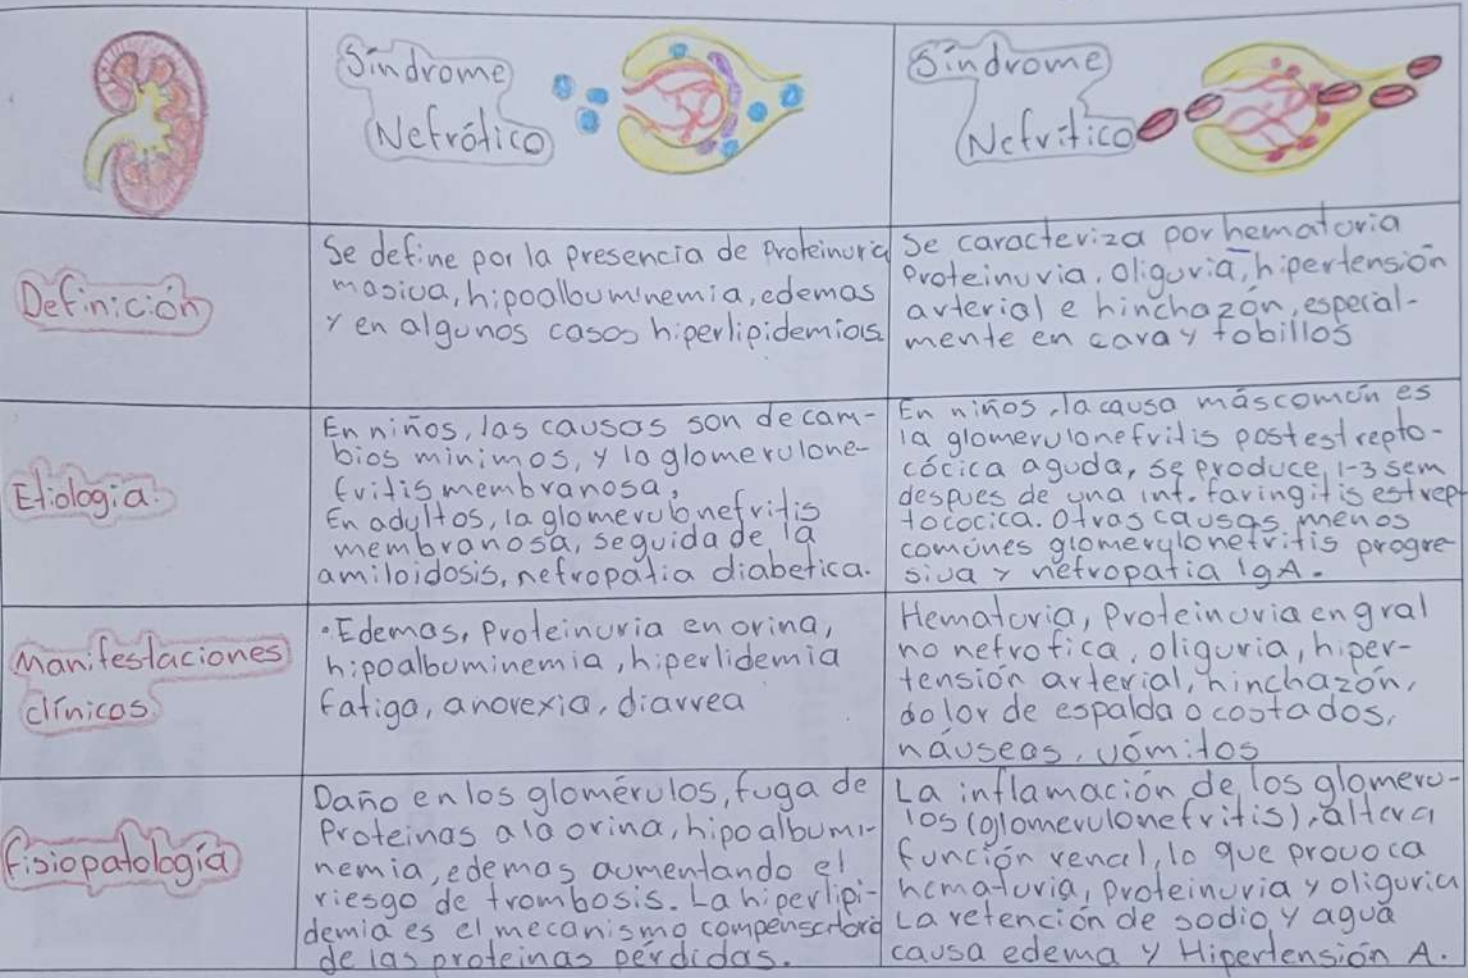 Síndrome
Nefrótico
Síndrome
Nefrítico
Definición
Se define por la presencia de Proteinuria
masiva, hipoalbuminemia, edemas
y en algunos casos hiperlipidemias
Se caracteriza por hematuria
Proteinuria, oliguria, hipertensión
arterial e hinchazón, especial-
mente en cara y tobillos
Etiología
En niños, las causas son de cam-
bios minimos, y la glomerulone-
fritis membranosa,
En adultos, la glomerulonefritis
membranosa, seguida de la
amiloidosis, nefropatia diabetica.
En niños, la causa más común es
la glomerulonefritis postestrepto-
cócica aguda, se produce 1-3 sem
despues de una inf. faringitis estrep-
tococica. Otras causas menos
comúnes glomerulonefritis progre
siva y nefropatia IgA.
Manifestaciones
clínicas
•Edemas, Proteinuria en orina,
hipoalbuminemia, hiperlidemia
fatiga, anorexia, diarrea
Hematuria, Proteinuria en gral
no nefrotica, oliguria, hiper-
tensión arterial, hinchazón,
dolor de espalda o costados,
náuseas, vómitos
fisiopatología
Daño en los glomérulos, fuga de
Proteinas a la orina, hipoalbumi-
nemia, edemas aumentando el
riesgo de trombosis. La hiperlipi-
demia es el mecanismo compensatorio
de las proteinas pérdidas.
La inflamación de los glomeru-
los (glomerulonefritis), altera
función renal, lo que provoca
hematuria, proteinuria y oliguria
La retención de sodio y agua
causa edema y Hipertensión A.